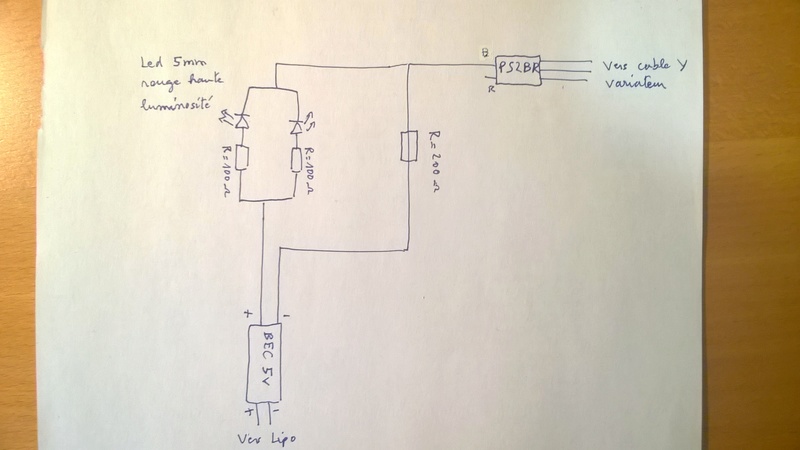 Led 5mm
rouge haute
luminosité
B
PS2BR
R
Vers cable Y
Variateur
R=100Ω
R=100Ω
R=200Ω
+ -
BEC 5V
+ -
Vers Lipo